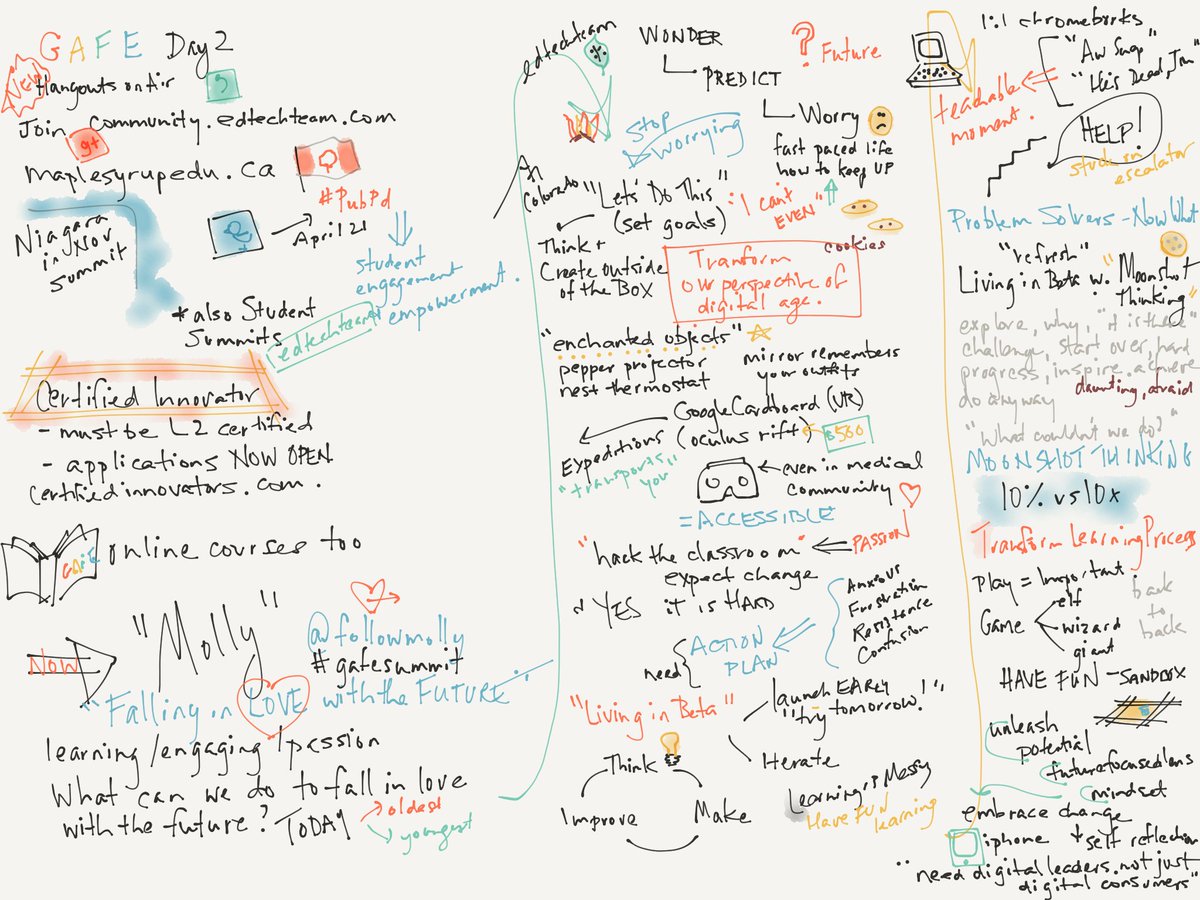 GAFE Day 2
NEW
Hangouts on Air
Join community.edtechteam.com
g+
maplesyrupedu.ca
#PubPd
April 21
Niagara
in Nov
Summit
student
engagement
empowerment.
*also Student
Summits
edtechteam
Certified Innovator
- must be L2 certified
- applications NOW OPEN
certifiedinnovators.com.
online courses too
NOW
"Molly"
@followmolly
#gafesummit
"Falling in LOVE with the FUTURE"
learning/engaging/passion
What can we do to fall in love
with the future? TODAY
oldest
youngest
edtechteam
WONDER
PREDICT
? Future
Worry
fast paced life
how to keep UP
Stop
Worrying
In
Colorado
"Let's Do This"
(set goals)
"I can't
EVEN"
cookies
Think +
Create outside
of the Box
Transform
our perspective of
digital age.
"enchanted objects"
pepper projector
nest thermostat
mirror remembers
your outfits
Google Cardboard (VR)
(oculus rift)
$500
Expeditions
"transports
you"
even in medical
community
=ACCESSIBLE
"hack the classroom"
PASSION
expect change
YES it is HARD
Anxious
Frustration
Resistance
Confusion
need
ACTION
PLAN
"Living in Beta"
launch EARLY
"try tomorrow!"
Iterate
Think
Make
Improve
Learning is Messy
Have FUN
learning
1:1 chromebooks
"Aw Snap"
"He's Dead, Jim"
teachable
moment.
HELP!
stuck on
escalator
Problem Solvers - Now What
"refresh"
Living in Beta w. "Moonshot
Thinking"
explore, why, "it is there"
challenge, start over, hard
progress, inspire. achieve
do anyway
daunting, afraid
"What couldn't we do?"
MOONSHOT THINKING
10% vs 10x
Transform Learning Process
Play = Important.
Game
elf
wizard
giant
back
to
back
HAVE FUN - SANDBOX
unleash
potential
future focused lens
mindset
embrace change
iphone + self reflection
"need digital leaders. not just
digital consumers"